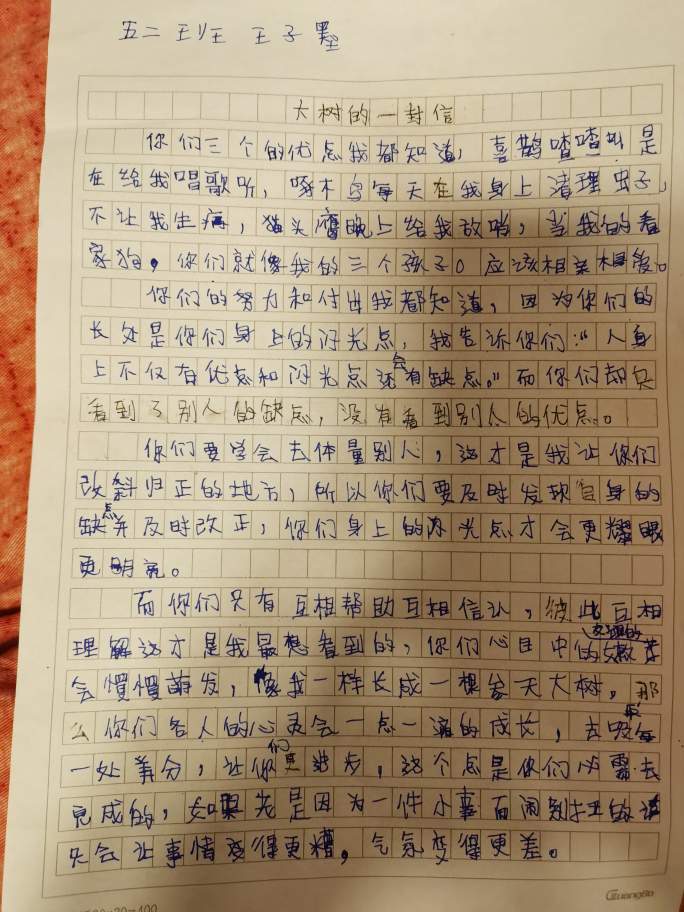 五二班 王子墨
大树的一封信
你们三个的优点我都知道，喜鹊喳喳叫是
在给我唱歌听，啄木鸟每天在我身上清理虫子，
不让我生病，猫头鹰晚上给我放哨，当我的看
家狗。你们就像我的三个孩子。应该相亲相爱。
你们的努力和付出我都知道，因为你们的
长处是你们身上的闪光点，我告诉你们：“人身
上不仅有优点和闪光点还会有缺点。”而你们却只
看到了别人的缺点，没有看到别人的优点。
你们要学会去体量别人，这才是我让你们
改斜归正的地方，所以你们要及时发现自身的
缺点并及时改正，你们身上的闪光点才会更耀眼
更明亮。
而你们只有互相帮助互相信认，彼此互相
理解这才是我最想看到的，你们心目中的嫩芽
会慢慢萌发，像我一样长成一棵参天大树，那
么你们各人的心灵会一点一滴的成长，去吸每
一处养分，让你们更进步，这个点是你们必需去
完成的，如果光是因为一件小事而闹别扭的话
只会让事情变得更糟，气氛变得更差。
Guangbo